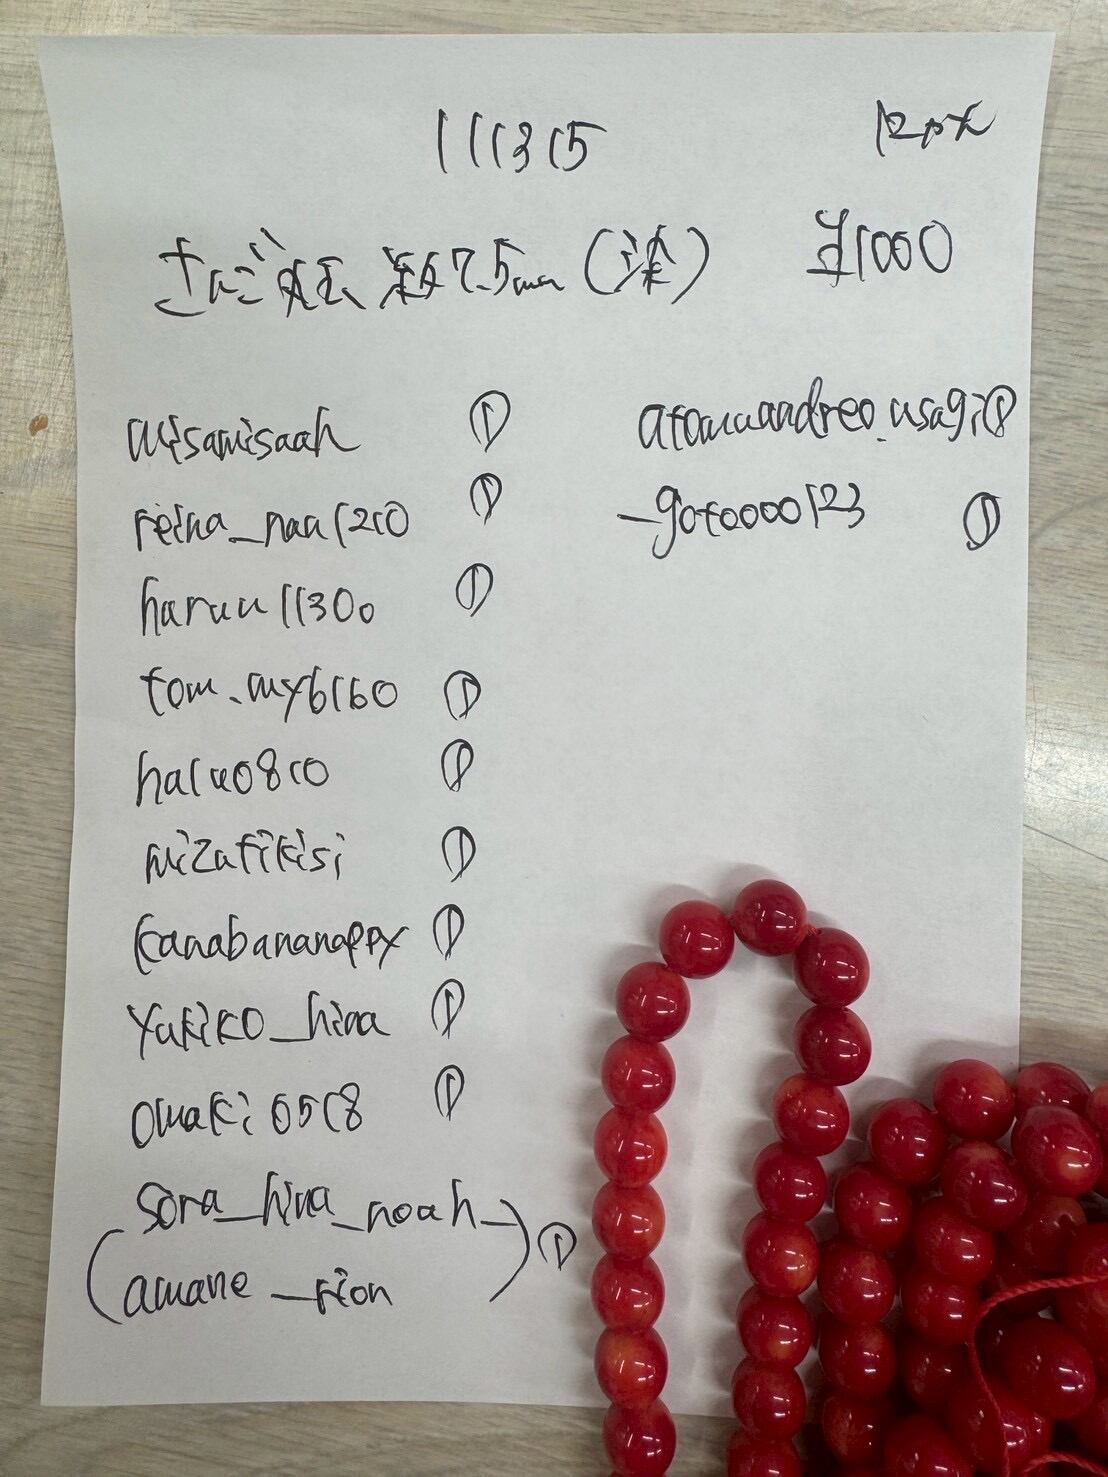 111315
12px
さんご 丸玉 約7.5mm (染) ¥1000
misamisaah ①
reina_nan1210 ①
haruu11300 ①
tom.my6160 ①
haluo810 ①
mizutikisi ①
kanabananappy ①
yukiko_hina ①
omaki0518 ①
(_sora_hina_noah_
amane_rion) ①
atomuandreo.usagi ①
_gotoooo123 ①